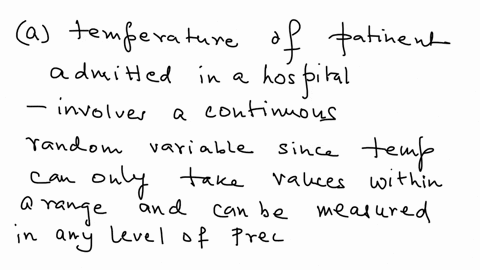 (a) temperature of patinent
admitted in a hospital
- involves a continuous
random variable since temp
can only take values within
a range and can be measured
in any level of Prec